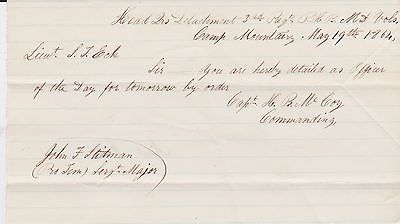 Head Qrs Detachment 3rd Regt P.H.B. Md Vols.
Camp Mountain, May 19th 1864,
Lieut. S. T. Eck
Sir You are hereby detailed as Officer
of the Day for tomorrow by order
Capt. H. B. McCoy
Commanding
John F Stitman
(Pro Tem) Serjt. Major)